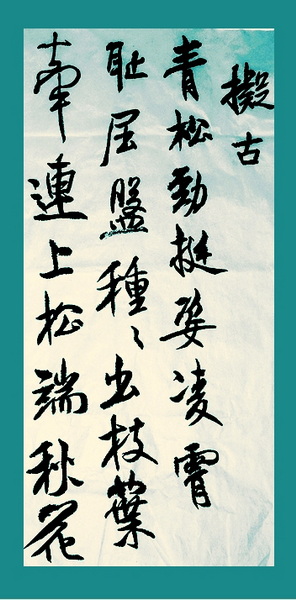 擬古
青松勁挺姿凌霄
耻屈盤種〻出枝葉
牽連上松端秋花